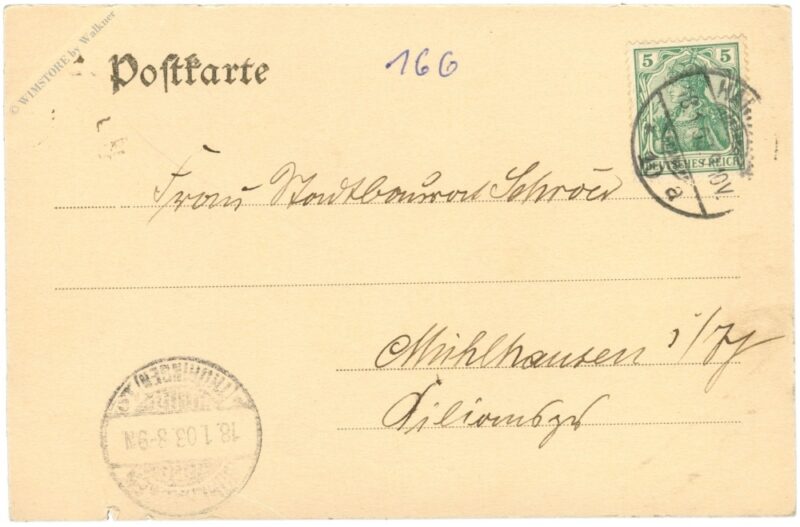 © WIMSTORE by Walkner
Postkarte
166
5 5
DEUTSCHES REICH
a
Frau Stadtbaurat
Mühlhausen i/Th
(THÜRINGEN)
18.1.03.8-9N